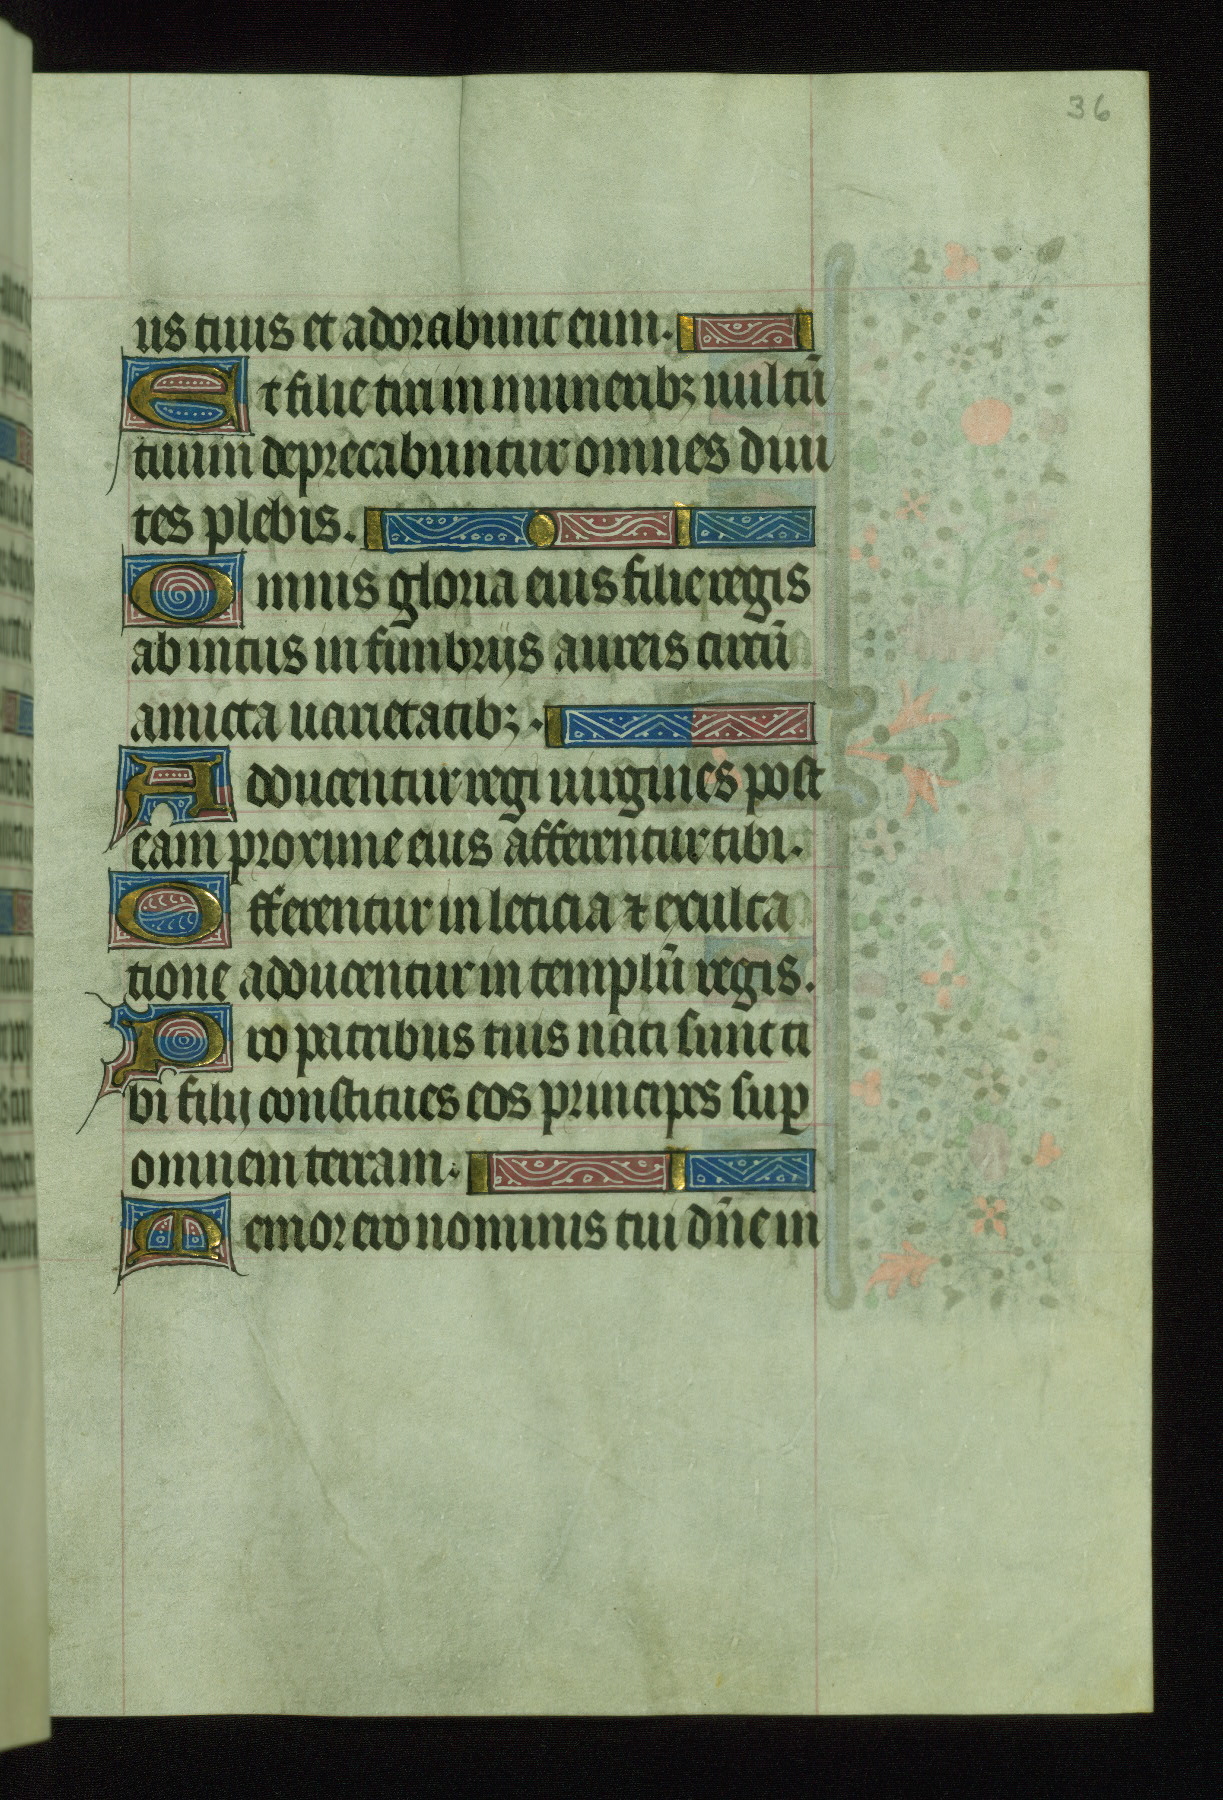 36
us tuus et adorabunt eum.
Et filie tiri in muneribꝫ uultū
tuum deprecabuntur omnes diui
tes plebis.
Omnis gloria eius filie regis
ab intus in fimbrijs aureis circū
amicta uarietatibꝫ.
Adducentur regi uirgines post
eam proxime eius afferentur tibi.
Offerentur in leticia ⁊ exulta
tione adducentur in templū regis.
Pro patribus tuis nati sunt ti
bi filij constitues eos principes suꝑ
omnem terram.
Memor ero nominis tui dn̄e in